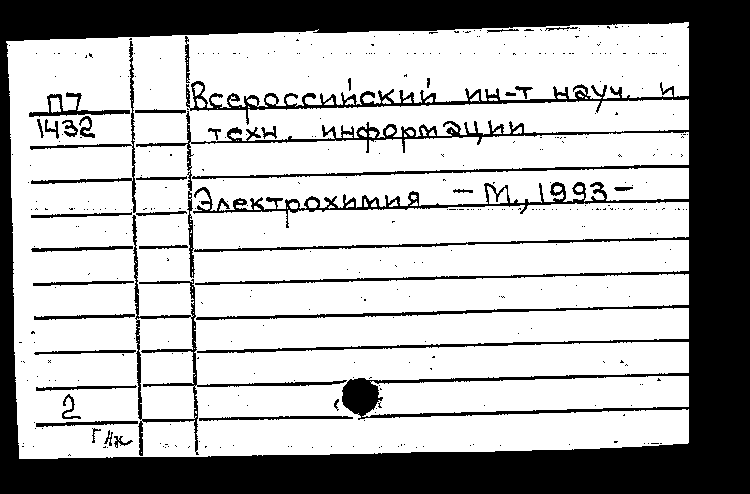 П7
1432
Всероссийский ин-т науч. и
техн. информации.
Электрохимия. - М., 1993-
2